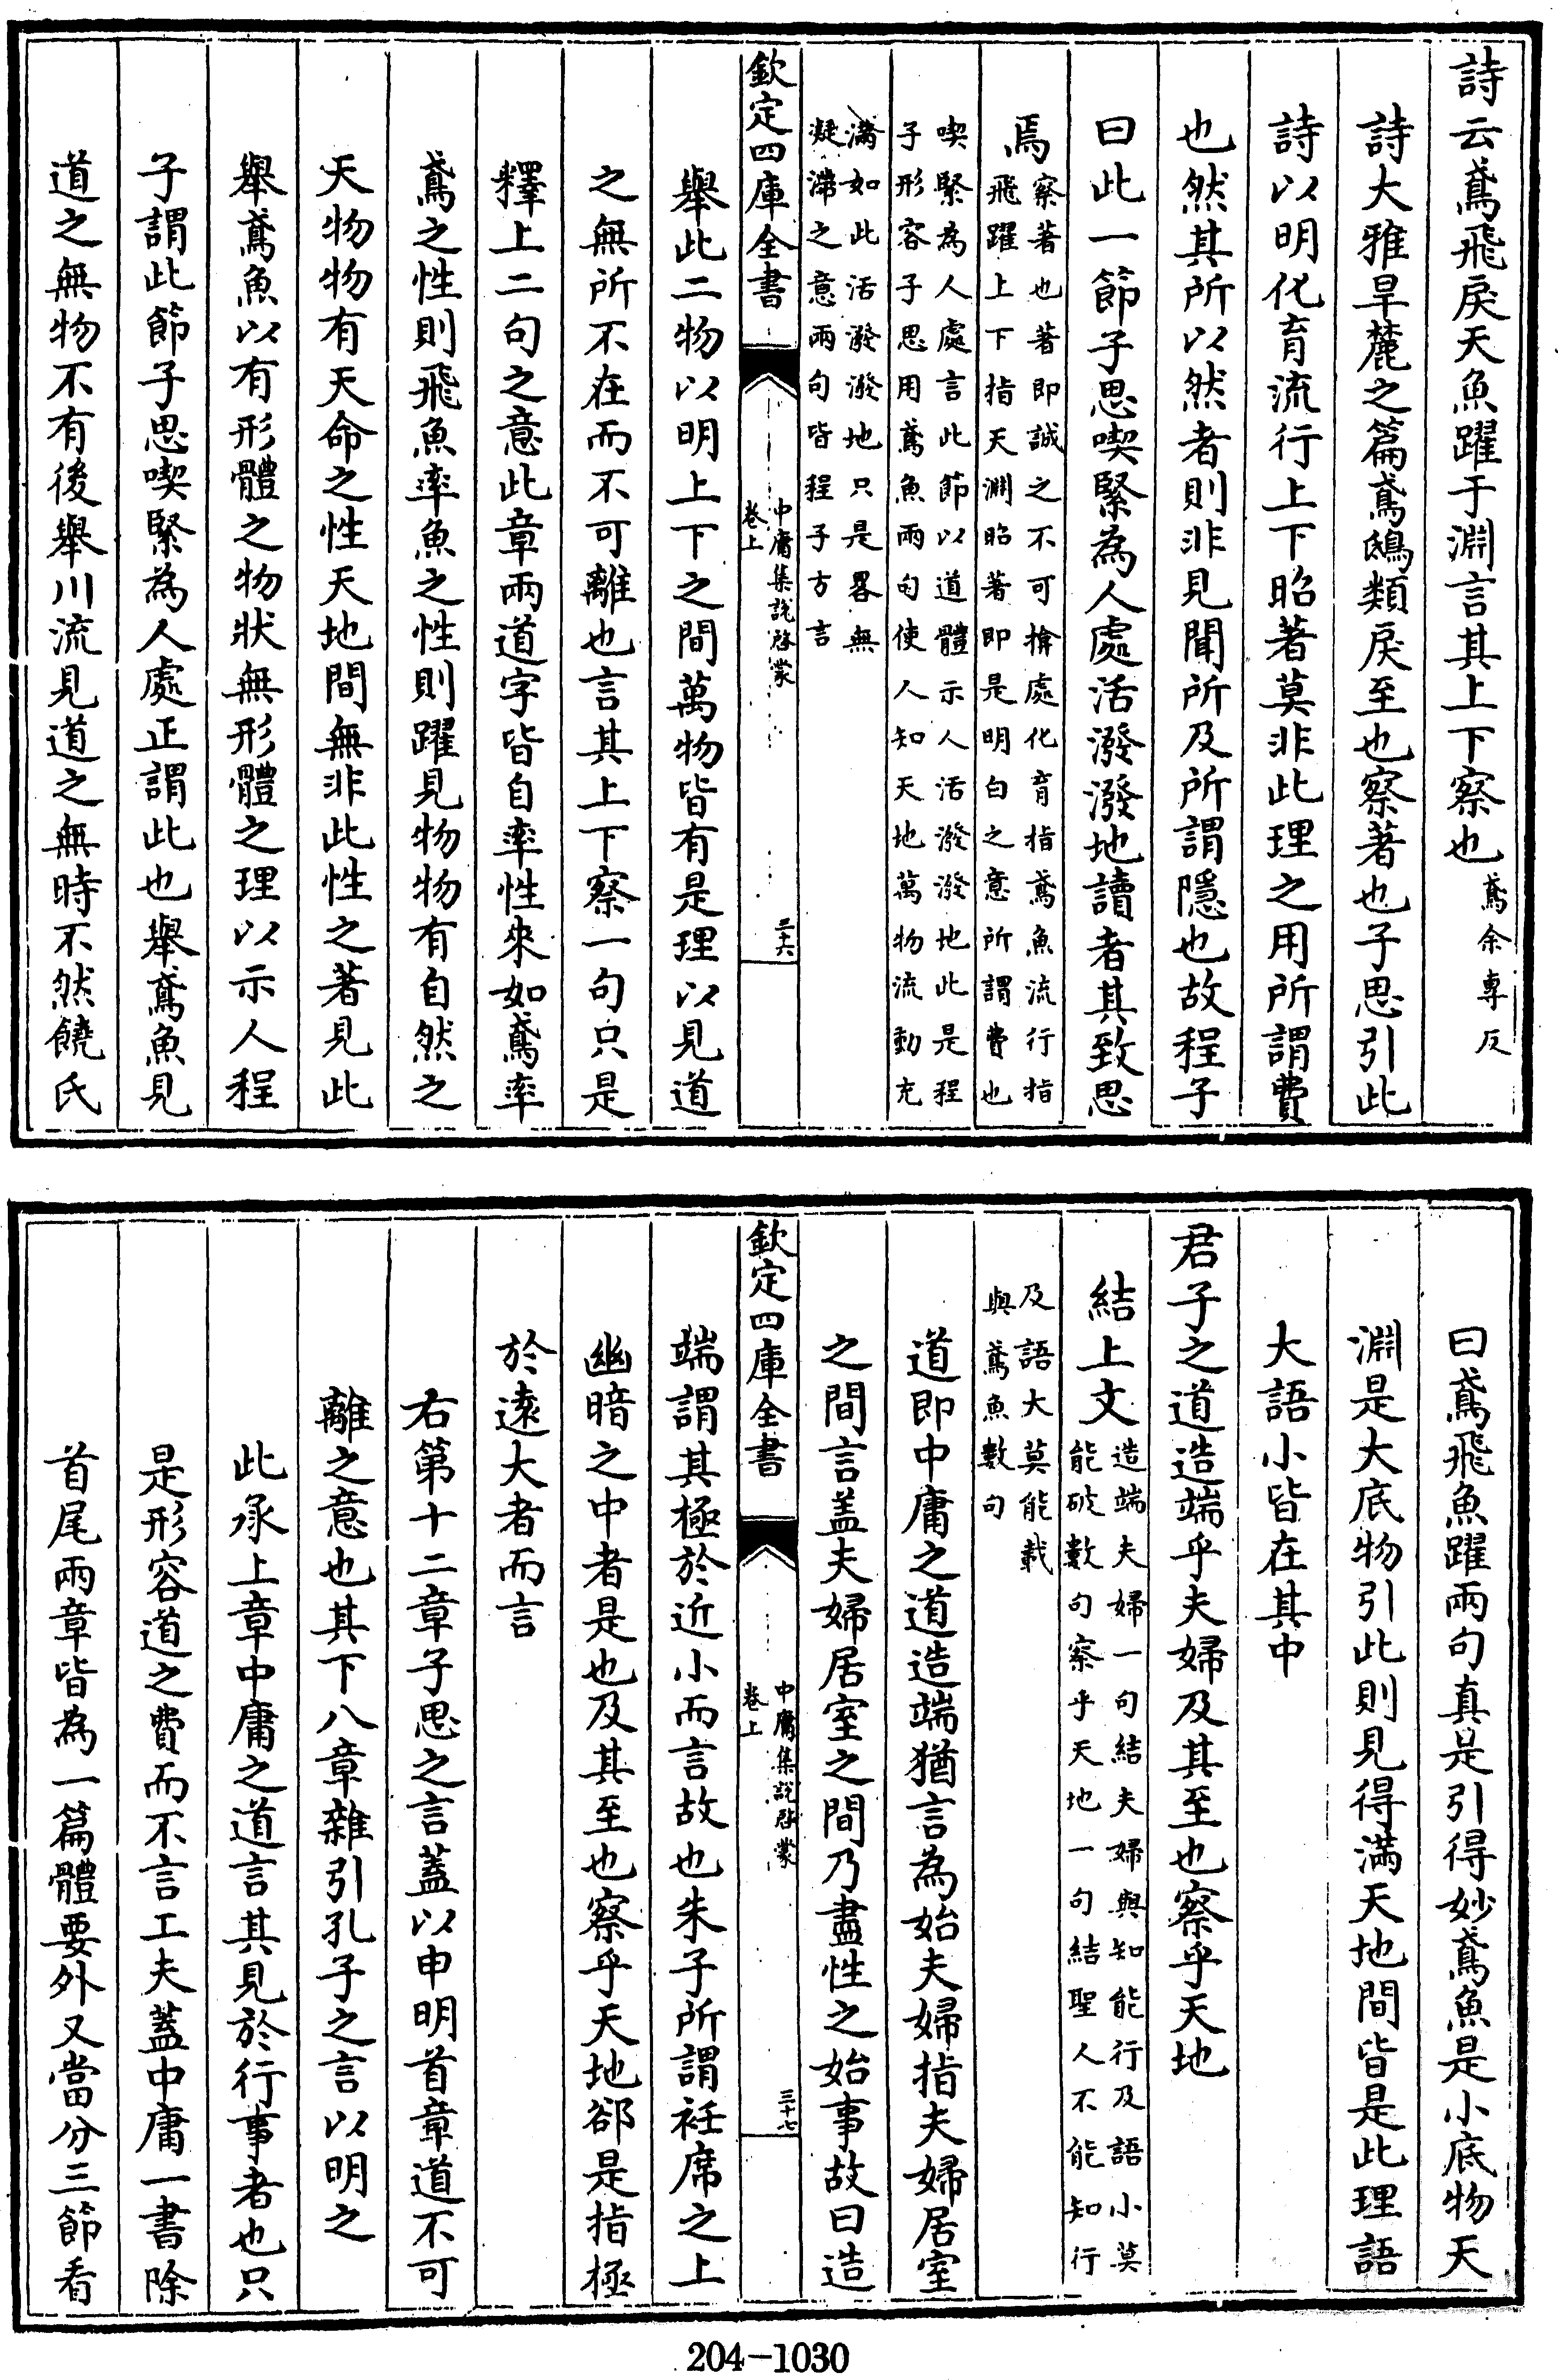 詩云鳶飛戾天魚躍于淵言其上下察也鳶余專反
詩大雅旱麓之篇鳶鴟類戾至也察著也子思引此
詩以明化育流行上下昭著莫非此理之用所謂費
也然其所以然者則非見聞所及所謂隱也故程子
曰此一節子思喫緊為人處活潑潑地讀者其致思
焉
察著也著即誠之不可揜處化育指鳶魚流行指
飛躍上下指天淵昭著即是明白之意所謂費也
喫緊為人處言此節以道體示人活潑潑地此是程
子形容子思用鳶魚兩句使人知天地萬物流動充
滿如此活潑潑地只是畧無
凝滯之意兩句皆程子方言
欽定四庫全書
中庸集說啓蒙
卷上
三十六
舉此二物以明上下之間萬物皆有是理以見道
之無所不在而不可離也言其上下察一句只是
釋上二句之意此章兩道字皆自率性來如鳶率
鳶之性則飛魚率魚之性則躍見物物有自然之
天物物有天命之性天地間無非此性之著見此
舉鳶魚以有形體之物狀無形體之理以示人程
子謂此節子思喫緊為人處正謂此也舉鳶魚見
道之無物不有後舉川流見道之無時不然饒氏
曰鳶飛魚躍兩句真是引得妙鳶魚是小底物天
淵是大底物引此則見得滿天地間皆是此理語
大語小皆在其中
君子之道造端乎夫婦及其至也察乎天地
結上文
造端夫婦一句結夫婦與知能行及語小莫
能破數句察乎天地一句結聖人不能知行
及語大莫能載
與鳶魚數句
道即中庸之道造端猶言為始夫婦指夫婦居室
之間言盖夫婦居室之間乃盡性之始事故曰造
欽定四庫全書
中庸集說啓蒙
卷上
三十七
端謂其極於近小而言故也朱子所謂衽席之上
幽暗之中者是也及其至也察乎天地郤是指極
於遠大者而言
右第十二章子思之言蓋以申明首章道不可
離之意也其下八章雜引孔子之言以明之
此承上章中庸之道言其見於行事者也只
是形容道之費而不言工夫蓋中庸一書除
首尾兩章皆為一篇體要外又當分三節看
204-1030